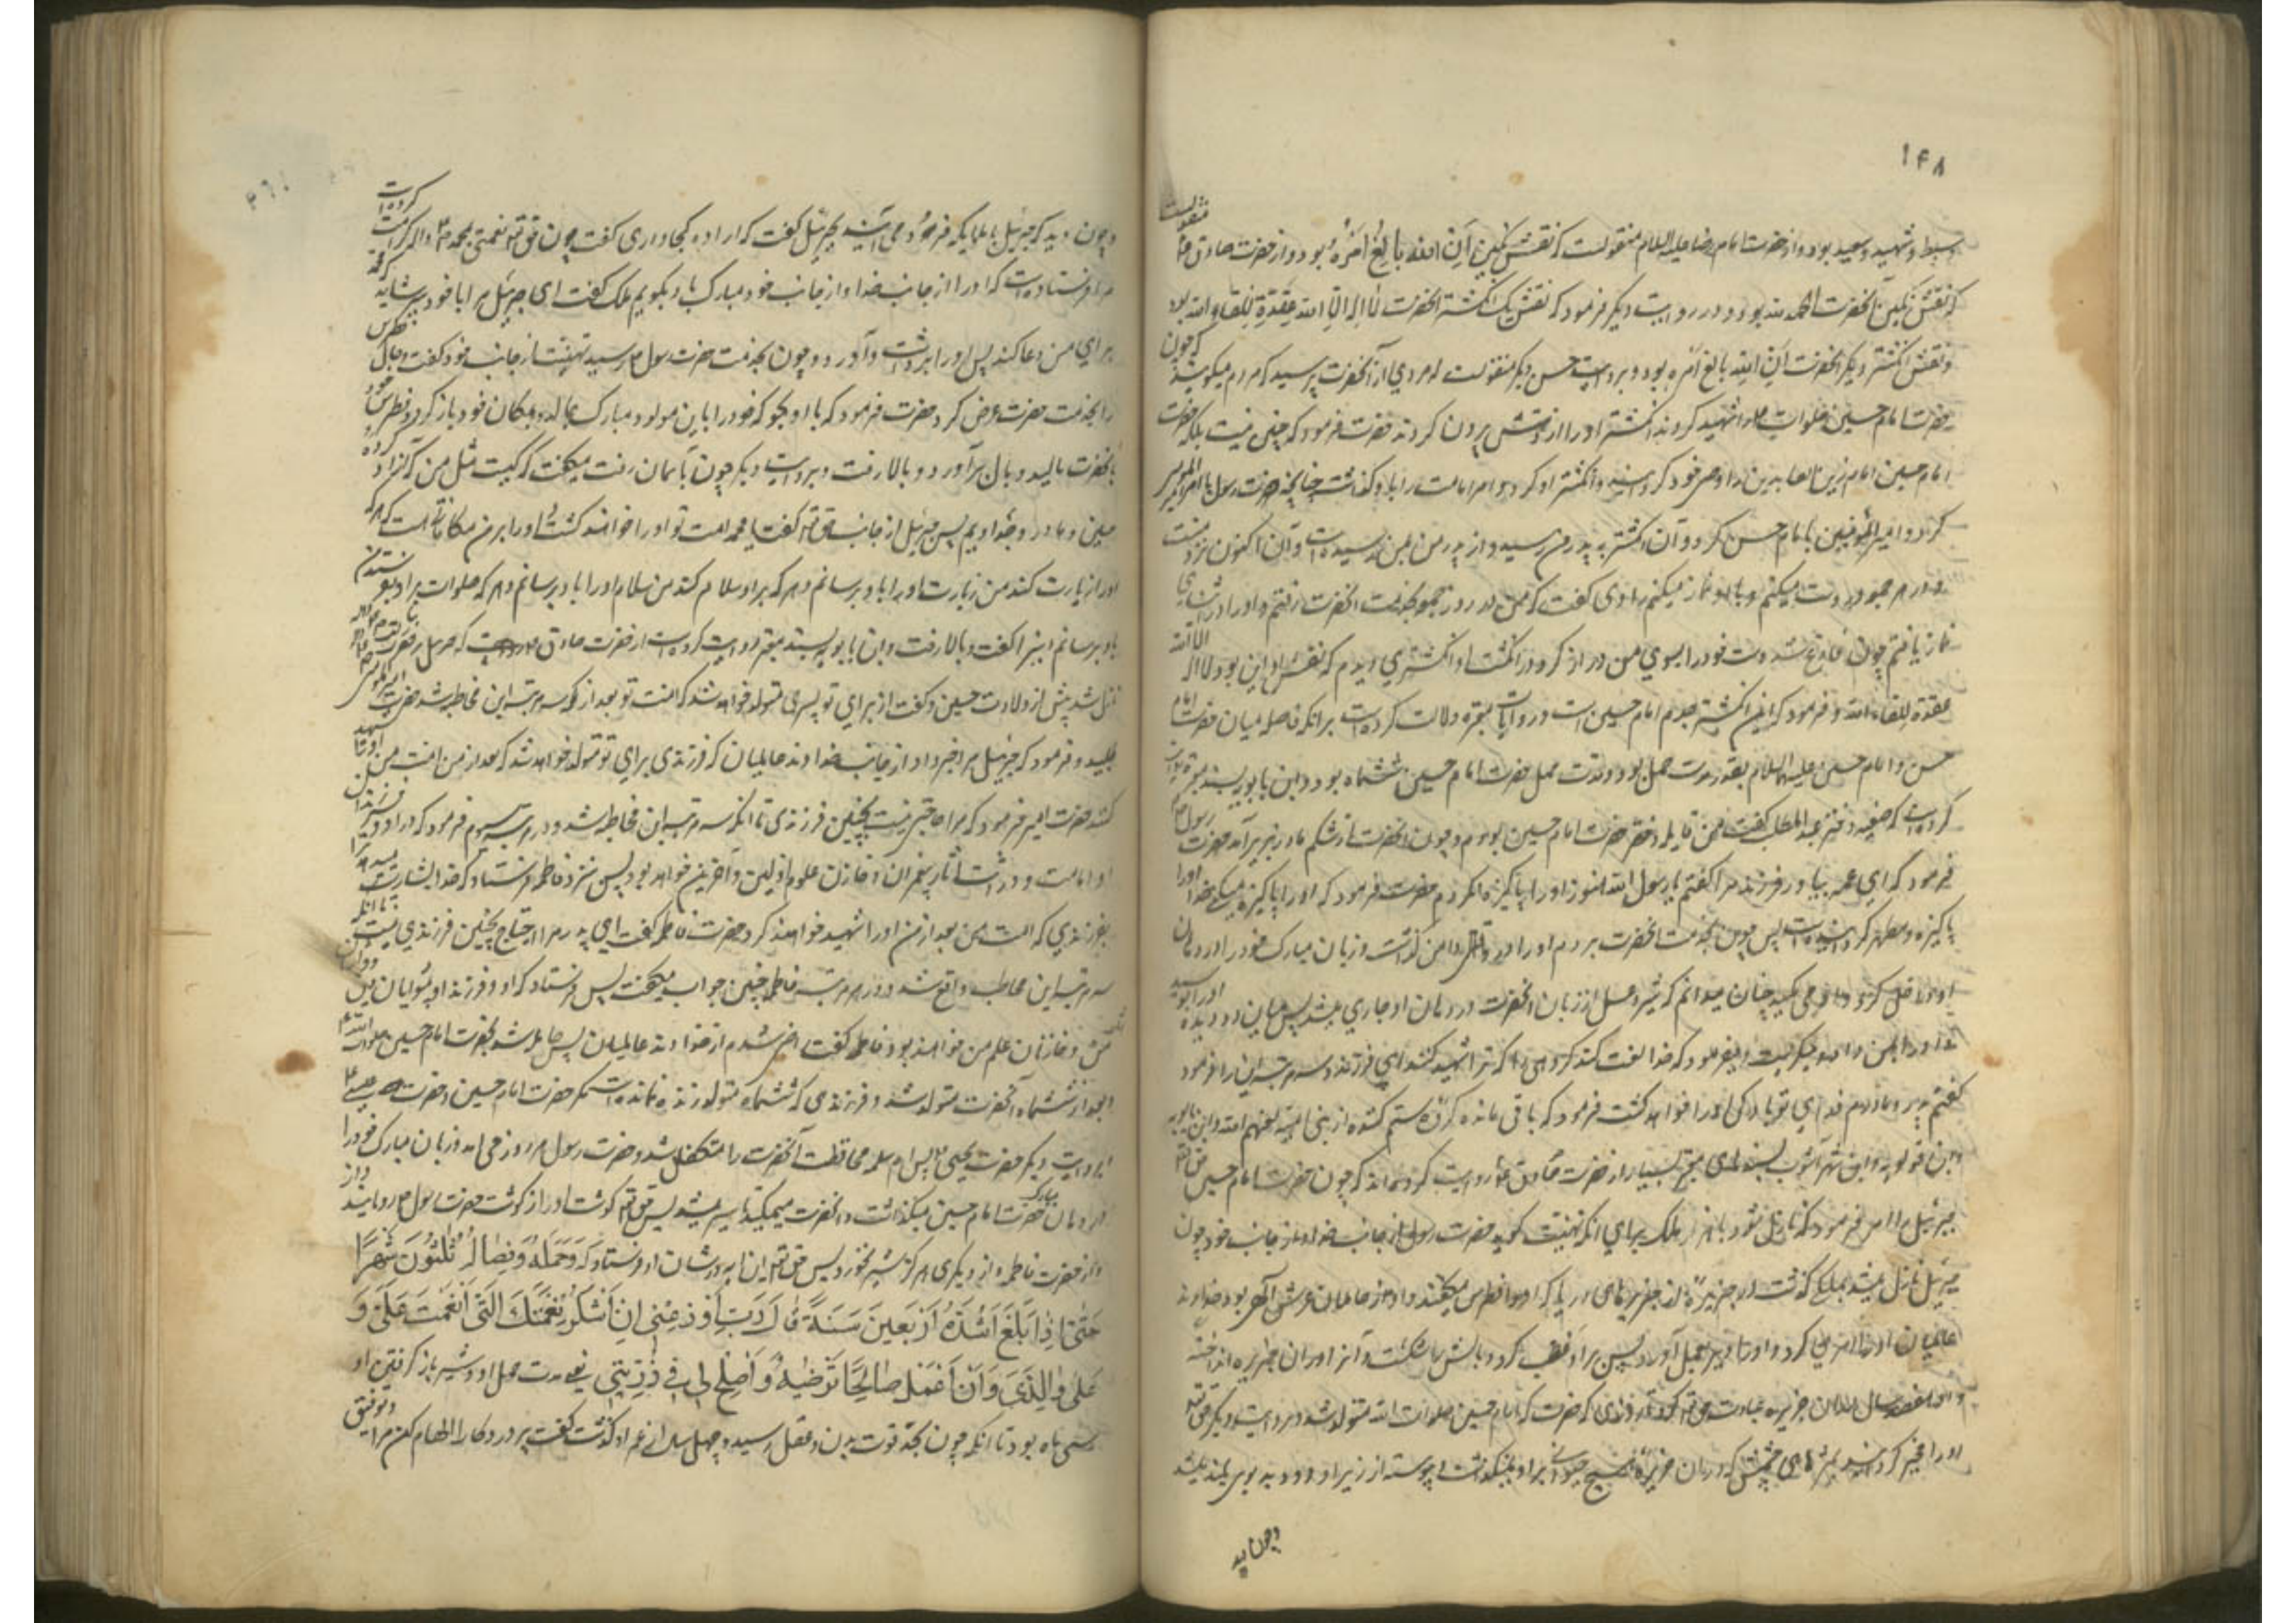 ۱۴۸
وسبط و شهید و سعید بود و از حضرت امام رضا علیه السلام منقولست که نقش نگین اِنَّ اللهَ بالِغُ اَمْرِهُ بود و از حضرت صادق ع منقولست
که نقش نگین آنحضرت الحمد لله بود و در روایت دیگر فرمود که نقش یک انگشتر آنحضرت لا اله الا الله عدة للقاء الله بود
و نقش انگشتر دیگر آنحضرت ان الله بالغ امره بود و بروایت حسن دیگر منقولست که مردی از آنحضرت پرسید که مردم میگویند که چون
حضرت امام حسین صلوات را شهید کردند انگشتر او را از دستش برون کردند حضرت فرمود که چنین نیست بلکه حضرت
امام حسین امام زین العابدین را وصی خود کردانید و انگشتر او کرد و امر امامت را باو گذاشت چنانچه حضرت رسول با امیر المؤمنین
کرد و امیر المؤمنین با امام حسن کرد و آن انگشتر به پدرم رسید و از پدر من بمن رسیده است و آن اکنون نزد منست
و در هر جمعه در دست میکنم و با او نماز میکنم راوی گفت که من در روز جمعه بخدمت آنحضرت رفتم و او را در اثنای
نماز یافتم چون فارغ شد دست خود را بسوی من دراز کرد و در انگشت او انگشتری دیدم که نقش او این بود لا اله الا الله
عدة للقاء الله و فرمود که این انگشتر جدم امام حسین است و روایات معتبره دلالت کرده است برانکه فاصله میان حضرت امام
حسن و امام حسین علیه السلام بقدر مدت حمل بود و مدت حمل حضرت امام حسین ششماه بود و ابن بابویه بسند معتبر روایت
کرده است که صفیه دختر عبد المطلب گفت من قابله حضرت امام حسین بودم و چون آنحضرت از شکم مادر بزیر آمد حضرت رسول ص
فرمود که ای عمه بیاور فرزند مرا گفتم یا رسول الله هنوز او را پاکیزه نکردم حضرت فرمود که او را پاکیزه میکنی خدا او را
پاکیزه و مطهر کردانیده است پس چون بخدمت آنحضرت بردم او را در دامن گذاشت و زبان مبارک خود را در دهان
او داخل کرد و او می مکید چنان میدانم که شیر و عسل از زبان آنحضرت در دهان او جاری میشد پس میان دو دیده او را بوسید
و او را بمن داد و میگریست و میفرمود که خدا لعنت کند گروهی را که ترا شهید کنند ای فرزند و سه مرتبه این را فرمود
گفتم پدر و مادرم فدای تو باد کی او را خواهد کشت فرمود که باقی مانده گروه ستم کننده از بنی امیه لعنهم الله و ابن بابویه
و ابن قولویه و ابن شهر آشوب بسندهای معتبر بسیار از حضرت صادق ع روایت کرده اند که چون حضرت امام حسین
جبرئیل را امر فرمود که نازل شود با هزار ملک برای آنکه تهنیت گوید حضرت رسول را از جانب خدا و از جانب خود چون
جبرئیل نازل میشد بملکی گذشت در جزیره از جزیره های دریا که او را فطرس میگفتند و او از حاملان عرش الهی بود خداوند
عالمیان او را امری کرد و او در آن دیر بعمل آورد پس بر او غضب کرد و بالش را شکست و آنرا در آن جزیره انداخته
و او هفتصد سال در آن جزیره عبادت حق تعالی کرد تا روزی که حضرت امام حسین صلوات الله متولد شد و بروایت دیگر حق تعالی
او را مخیر کردانید که دران جزیره هیچ حیوانی بر او نمیگذشت و پیوسته از زیر او دود بدبوی بلند میشد
و چون دید
و چون دید که جبرئیل با ملایکه فرود می آیند بجبرئیل گفت که اراده کجا داری گفت چون حق تعالی نعمتی بمحمد ص کرامت کرده است
مرا فرستاده است که او را از جانب خدا و از جانب خود مبارک باد بگویم ملک گفت ای جبرئیل مرا با خود ببر شاید که محمد
برای من دعا کند پس او را برداشت و آورد و چون بخدمت حضرت رسول ص رسید تهنیت از جانب خود گفت و حال فطرس
را بخدمت حضرت عرض کرد حضرت فرمود که با او بگو که خود را باین مولود مبارک بمالد و بمکان خود باز گردد فطرس خود
بانحضرت مالید و بال برآورد و بالا رفت و بروایت دیگر چون بآسمان رفت میگفت که کیست مثل من که آزاد کرده
حسین و مادر و جد اویم پس جبرئیل از جانب حق تعالی گفت یا محمد امت تو او را خواهند کشت و او را بر من مکافاتی هست که هر که
او را زیارت کند من زیارت او را باو برسانم و هر که بر او سلام کند من سلام او را باو برسانم و هر که صلوات بر او بفرستد من
باو برسانم این را گفت و بالا رفت و ابن بابویه بسند معتبر روایت کرده است از حضرت صادق ع که جبرئیل بر حضرت رسول
نازل شد پیش از ولادت حسین و گفت از برای تو پسری متولد خواهد شد که امت تو بعد از تو سه مرتبه این مخاطبه شد حضرت امیر المؤمنین
طلبید و فرمود که جبرئیل مرا خبر داد از جانب خداوند عالمیان که فرزندی برای تو متولد خواهد شد که بعد از من امت من او را شهید
کنند حضرت امیر فرمود که مرا حاجتی نیست بچنین فرزندی تا آنکه سه مرتبه این مخاطبه شد و در مرتبه سیوم فرمود که در او و فرزندان
او امامت و وراثت آثار پیغمبران و خازن علوم اولین و آخرین خواهد بود پس نزد فاطمه فرستاد که خدا بشارت میدهد ترا
بفرزندی که امت من بعد از من او را شهید خواهند کرد حضرت فاطمه گفت ای پدر مرا احتیاج بچنین فرزندی نیست تا آنکه
سه مرتبه این مخاطبه واقع شد و در هر مرتبه فاطمه چنین جواب میگفت پس فرستاد که او و فرزند او پیشوایان دین و وارثان
من و خازنان علم من خواهند بود فاطمه گفت راضی شدم از خداوند عالمیان پس حامله شد بحضرت امام حسین صلوات الله
و بعد از ششماه آنحضرت متولد شد و فرزندی که ششماه متولد زنده نمانده است مگر حضرت امام حسین و حضرت عیسی ع
بروایت دیگر حضرت یحیی ع پس ام سلمه محافظت آنحضرت را متکفل شد و حضرت رسول هر روز می آمد و زبان مبارک خود را
در دهان مبارک حضرت امام حسین میگذاشت و آنحضرت میمکید تا سیر میشد پس حق تعالی گوشت او را از گوشت حضرت رسول ص رویانید
و از حضرت فاطمه و از دیگری هرگز شیر نخورد پس حق تعالی این آیه در شان او فرستاد که وَحَمْلُهُ وَفِصَالُهُ ثَلٰثُونَ شَهْرًا
حَتّٰى اِذَا بَلَغَ اَشُدَّهُ وَ اَرْبَعِينَ سَنَةً قَالَ رَبِّ اَوْزِعْنِى اَنْ اَشْكُرَ نِعْمَتَكَ الَّتِى اَنْعَمْتَ عَلَىَّ وَ
عَلٰى وَالِدَىَّ وَ اَنْ اَعْمَلَ صَالِحًا تَرْضٰيهُ وَ اَصْلِحْ لِى فِى ذُرِّيَّتِى یعنی مدت حمل او و شیر باز گرفتن او
سی ماه بود تا آنکه چون بحد قوت بدن و عقل رسید و چهل سال از عمر او گذشت گفت پروردگارا الهام کن مرا و توفیق